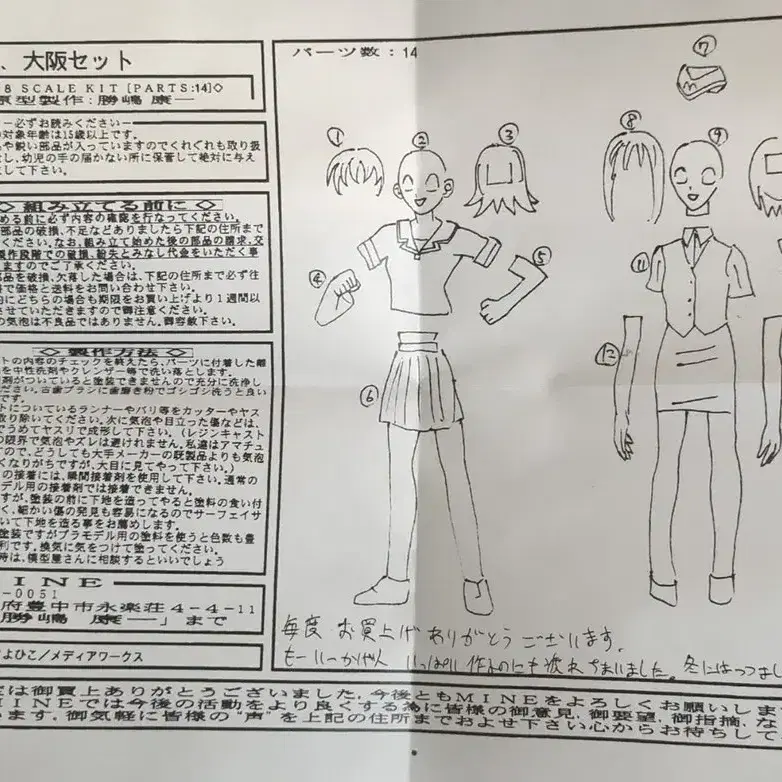 、大阪セット
8 SCALE KIT [PARTS:14]◇
原型製作:勝嶋 康一
―必ずお読みください―
対象年齢は15歳以上です。
や鋭い部品が入っていますのでくれぐれも取り扱
し、幼児の手の届かない所に保管して絶対に与え
して下さい。
◇ 組み立てる前に ◇
める前に必ず内容の確認を行なってください。
部品の破損、不足などありましたら下記の住所まで
ください。なお、組み立て始めた後の部品の請求、交
製作段階での破損、紛失とみなし代金をいただく事
ますのでご了承ください。
部品を破損、欠落した場合は、下記の住所まで必ず往
で価格と送料をお問い合わせ下さい。
にどちらの場合も期限をお買い上げより1週間以
させていただきますので御注意ください。
の気泡は不良品ではありません。御容赦下さい。
◇ 製作方法 ◇
トの内容のチェックを終えたら、パーツに付着した離
を中性洗剤やクレンザー等で洗い落とします。
剤がついていると塗装できませんので充分に洗浄し
ださい。古歯ブラシに歯磨き粉でゴシゴシ洗うと良い
です。
トについているランナーやバリ等をカッターやヤス
取り除いてください。次に気泡や目立った傷などは、
でうめてヤスリで成形して下さい。(レジンキャスト
の限界で気泡やズレは避けれません。私達はアマチュ
ので、どうしても大手メーカーの既製品よりも気泡
くなりがちですが、大目に見てやって下さい。)
の接着には、瞬間接着剤を使用して下さい。通常の
モデル用の接着剤では接着できません。
すが、塗装の前に下地を造ってやると塗料の食い付
く、細かい傷の発見も容易になるのでサーフェイサ
いて下地を造る事をお薦めします。
塗装ですがプラモデル用の塗料を使うと色数も豊
利です。換気に気をつけて塗ってください。
時は、模型屋さんに相談するといいでしょう
INE
-0051
府豊中市永楽荘4-4-11
勝嶋 康一」まで
よひこ/メディアワークス
パーツ数:14
①
②
③
④
⑤
⑥
⑦
⑧
⑨
⑪
⑫
毎度 お買上げ ありがとう ございます。
いっぱい
疲れちゃいました。冬には
は御買上ありがとうございました。今後ともMINEをよろしくお願いしま
INEでは今後の活動をより良くする為に皆様の御意見、御要望、御指摘、な
います。御気軽に皆様の"声"を上記の住所までおよせ下さい心からお待ちして